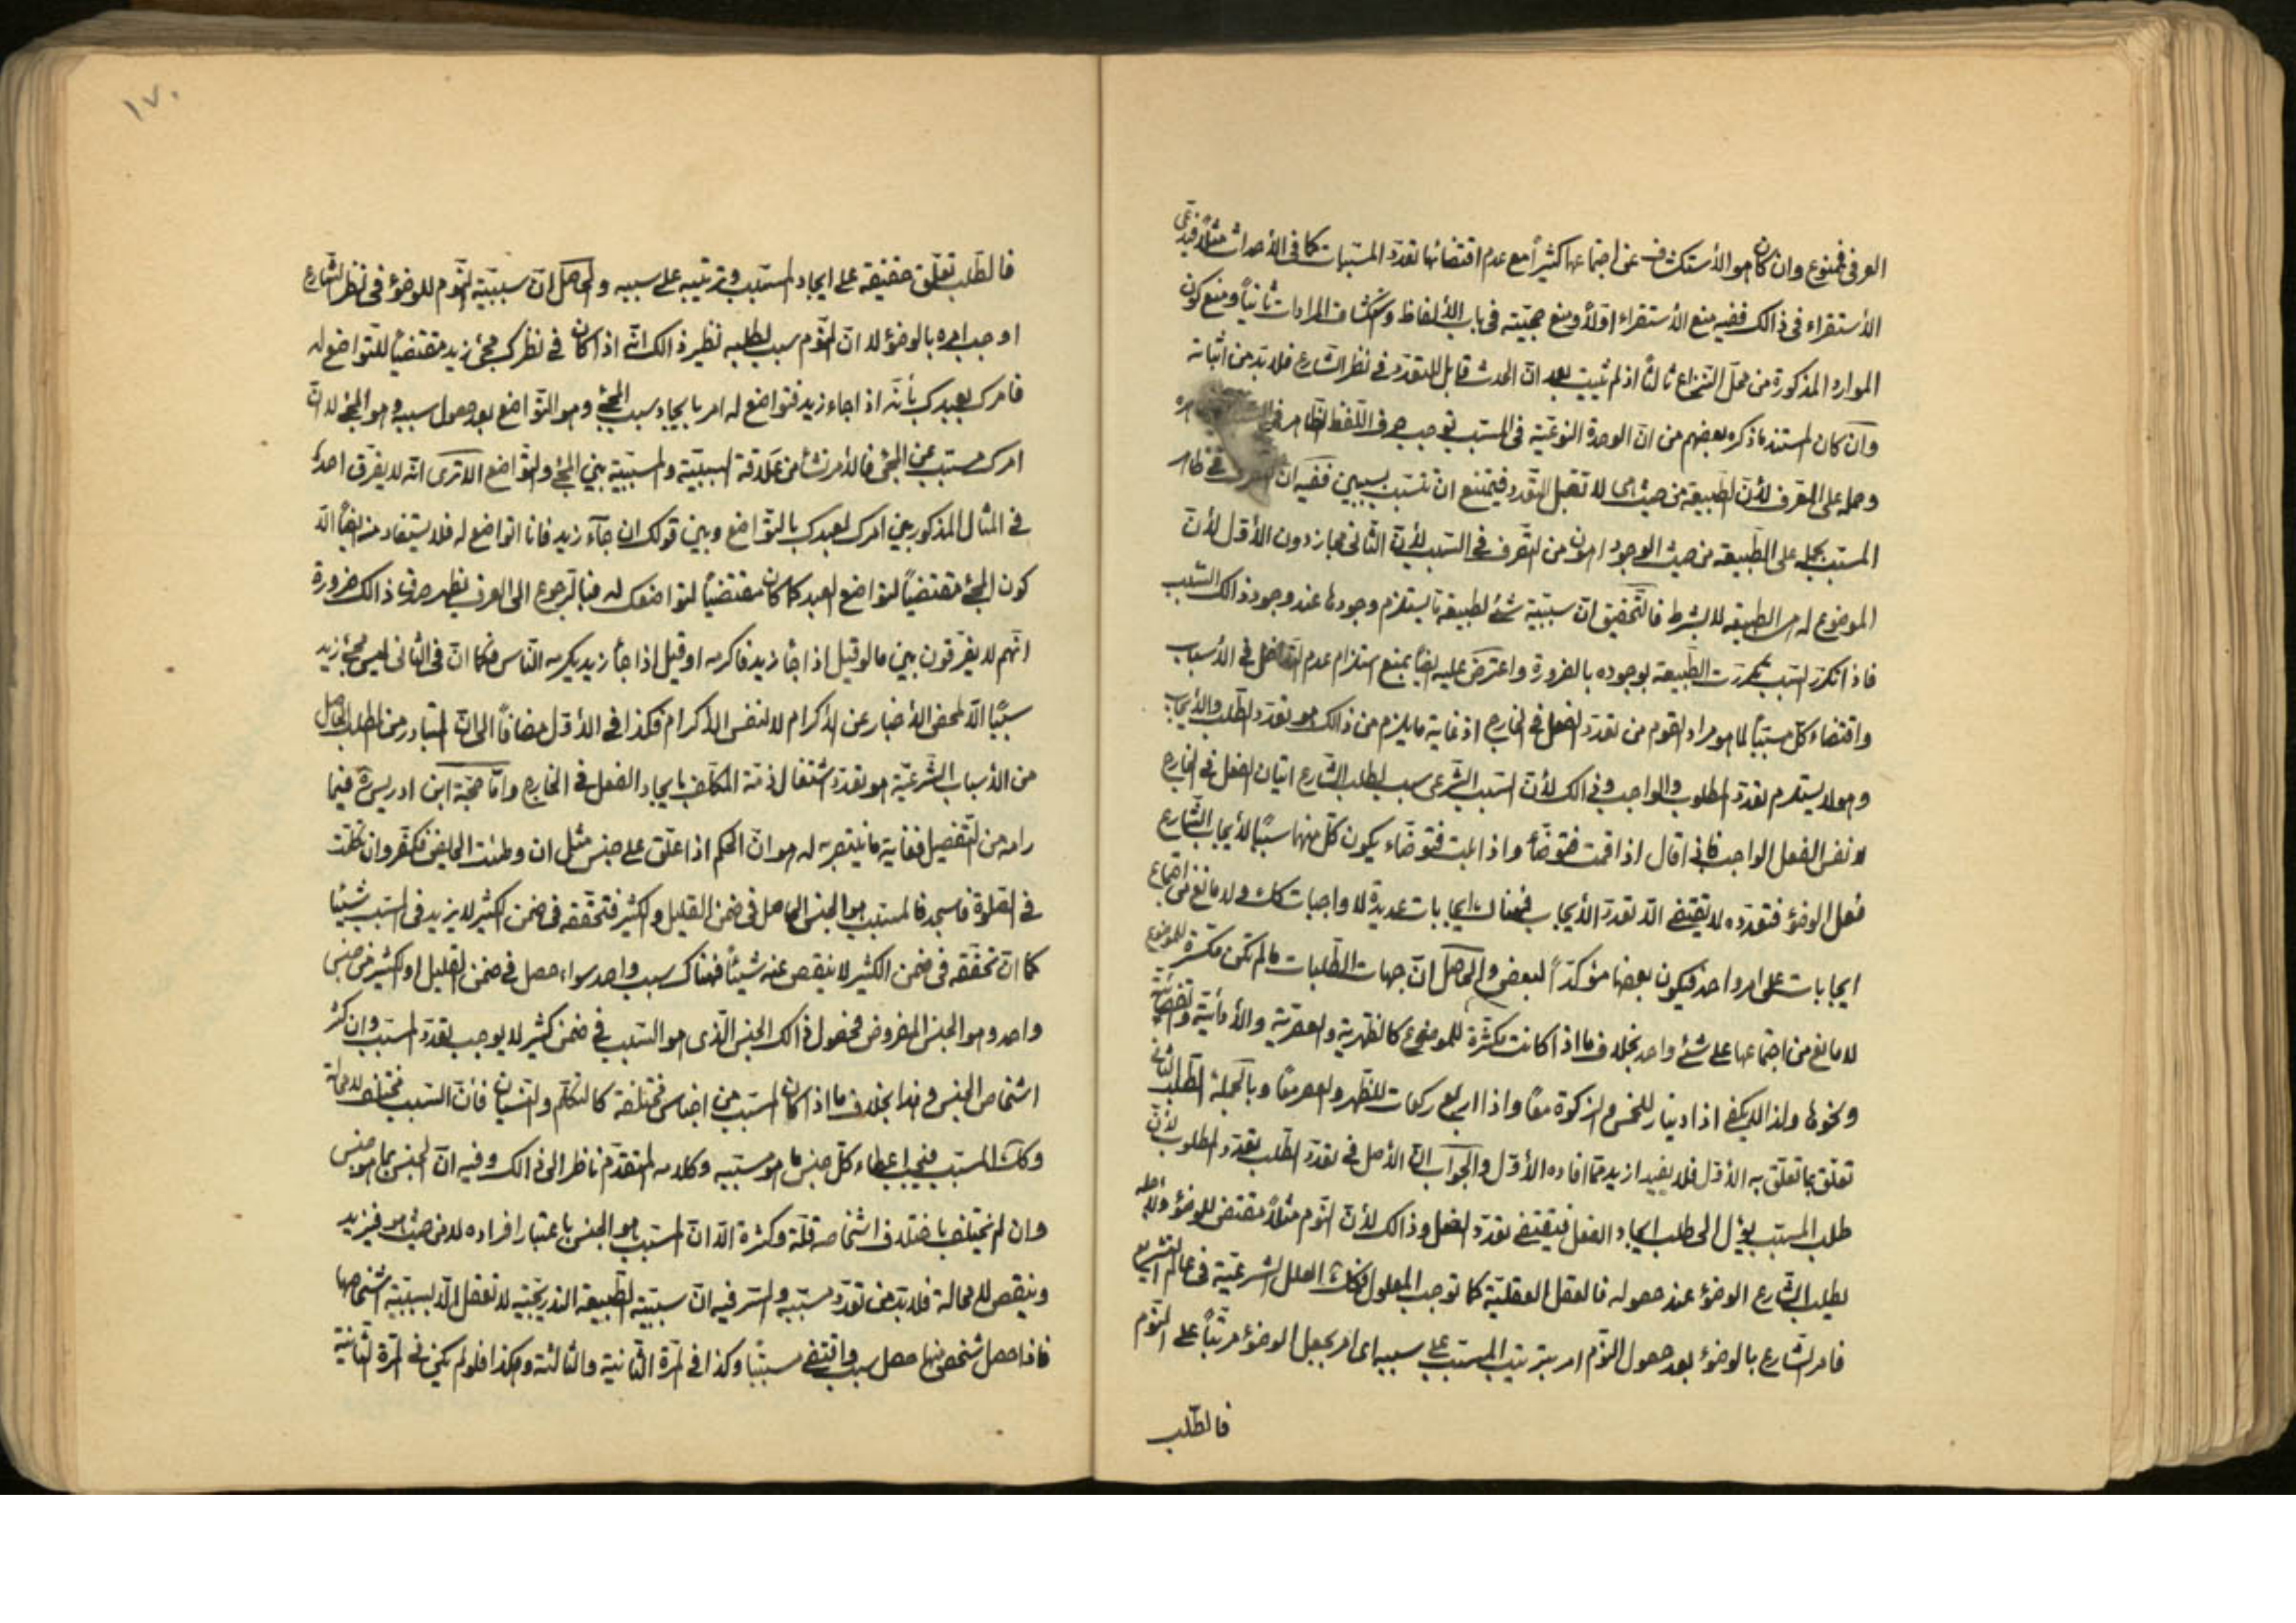 العرفى فممنوع وان كان هو الأستكشاف عن اجتماعها كثيراً مع عدم اقتضائها تعدد المسببات كما فى الأحداث مثلاً فيدعى
الأستقراء فى ذالك ففيه منع الأستقراء اوّلاً ومنع حجيّته فى باب الألفاظ واستكشاف المرادات ثانياً ومنع كون
الموارد المذكورة من محل النزاع ثالثاً اذ لم يثبت بعد ان الحدث قابل للتعدد فى نظر الشارع فلا بدّ من اثباته
وان كان المستند ما ذكره بعضهم من ان الوحدة النوعيّة فى المسبب توجب صرف اللفظ الظاهر فى
وحمله على المعرف لأنّ الطبيعة من حيث هى لا تقبل التعدد فيمتنع ان تتسبب بسببين ففيه ان التصرف فى ظاهر
المسبب بحمله على الطبيعة من حيث الوجود اهون من التصرف فى السبب لأنّ الثانى مجاز دون الأوّل لأنّ
الموضوع له هى الطبيعة لا بشرط فالتحقيق ان سببيّة شئ لطبيعة ما يستلزم وجودها عند وجود ذالك السبب
فاذا تكرر السبب تكررت الطبيعة بوجوده بالضرورة واعترض عليه ايضاً بمنع استلزام عدم التداخل فى الأسباب
واقتضاء كل مسبباً لما هو مراد القوم من تعدد الفعل فى الخارج اذ غاية ما يلزم من ذالك هو تعدد الطلب والأيجاب
وهو لا يستلزم تعدد المطلوب والواجب وذالك لأنّ السبب الشرعى سبب لطلب الشارع اتيان الفعل فى الخارج
لا نفس الفعل الواجب فاذا قال اذا نمت فتوضأ واذا بلت فتوضاء يكون كل منها سبباً لأيجاب الشارع
فعل الوضوء فتعدده لا يقتضى الاّ تعدد الأيجاب فهناك ايجابات عديدة لا واجبات كك ولا مانع من اجتماع
ايجابات على امر واحد فيكون بعضها مؤكداً لبعض والحاصل ان جهات الطلبات ما لم تكن مكثرة للموضوع
لا مانع من اجتماعها على شئ واحد بخلاف ما اذا كانت مكثرة للموضوع كالظهرية والعصرية والأدائية والقضائيّة
ونحوها ولذا لا يكفى اذا دينار للخمس والزكوة معاً واذا اربع ركعات للظهر والعصر معاً وبالجملة الطلب الثانى
تعلق بما تعلق به الأوّل فلا يفيد ازيد مما افاده الأوّل والجواب ان الأصل فى تعدد الطلب تعدد المطلوب لأنّ
طلب المسبب يؤل الى طلب ايجاد الفعل فيقتضى تعدد الفعل وذالك لأنّ النوم مثلاً مقتض للوضوء ولأجله
يطلب الشارع الوضوء عند حصوله فالعقل العقليّة كما توجب المعلول فكك العلل الشرعيّة فى عالم التشريع
فامر الشارع بالوضوء بعد حصول النوم امر بترتيب المسبب على سببه اى امر بجعل الوضوء مرتباً على النوم
فالطلب
١٧٠
فالطلب تعلق حقيقة على ايجاد المسبب وترتيبه على سببه والحاصل ان سببيّة النوم للوضوء فى نظر الشارع
اوجب امره بالوضوء لا ان النوم سبب لطلبه نظير ذالك انّه اذا كان فى نظرك مجئ زيد مقتضياً للتواضع له
فامرك بعبدك بأنّه اذا جاء زيد فتواضع له امر بايجاد سبب المجئ وهو التواضع بعد حصول سببه وهو المجئ لا ان
امرك مسبب عن المجئ فالأمر نشأ من علاقة السببيّة والمسببيّة بين المجئ والتواضع الا ترى انّه لا يفرق احد
فى المثال المذكور بين امرك لعبدك بالتواضع وبين قولك ان جآء زيد فانا اتواضع له فلا يستفاد منه ايضاً الاّ
كون المجئ مقتضياً لتواضع العبد كما كان مقتضياً لتواضعك له فبالرجوع الى العرف يظهر صدق ذالك ضرورة
انّهم لا يفرقون بين ما لو قيل اذا جاء زيد فاكرمه او قيل اذا جاء زيد يكرمه الناس فكما ان فى الثانى ليس مجئ زيد
سبباً الاّ لمحض الأخبار عن الأكرام لا لنفس الأكرام فكذا فى الأوّل مضافاً الى ان المتبادر من الطلب الحاصل
من الأسباب الشرعيّة هو تعدد اشتغال ذمّة المكلف بايجاد الفعل فى الخارج وامّا حجّة ابن ادريس ره فيما
رامه من التفصيل فغاية ما ينتصر به له هو ان الحكم اذا علّق على جنس مثل ان وطئت الحايض فكفّر وان تكلمت
فى الصلوة فاسجد فالمسبب هو الجنس الحاصل فى ضمن القليل والكثير فتحققه فى ضمن الكثير لا يزيد فى السبب شيئاً
كما ان تحققه فى ضمن الكثير لا ينقص عنه شيئاً فهناك سبب واحد سواء حصل فى ضمن القليل او الكثير من جنس
واحد وهو الجنس المفروض فحصول ذالك الجنس الّذى هو السبب فى ضمن كثير لا يوجب تعدد السبب وان كثر
اشخاص الجنس وهذا بخلاف ما اذا كان السبب من اجناس مختلفة كالتكلم والنسيان فان السبب مختلف لا محالة
وكك المسبب فيجب اعطاء كل جنس ما هو مسببه وكلامه المتقدم ناظر الى ذالك وفيه ان الجنس بما هو جنس
وان لم يختلف باختلاف اشخاصه قلة وكثرة الاّ ان السبب هو الجنس باعتبار افراده لا من حيث هو فيزيد
وينقص لا محالة فلا بدّ من تعدد مسببه والسر فيه ان سببيّة الطبيعة التدريجيّة لا تعقل الاّ بسببيّة اشخاصها
فاذا حصل شخص منها حصل سبب واقتضى مسبباً وكذا فى المرّة الثانية والثالثة وهكذا فلو لم يكن فى المرّة الثانية